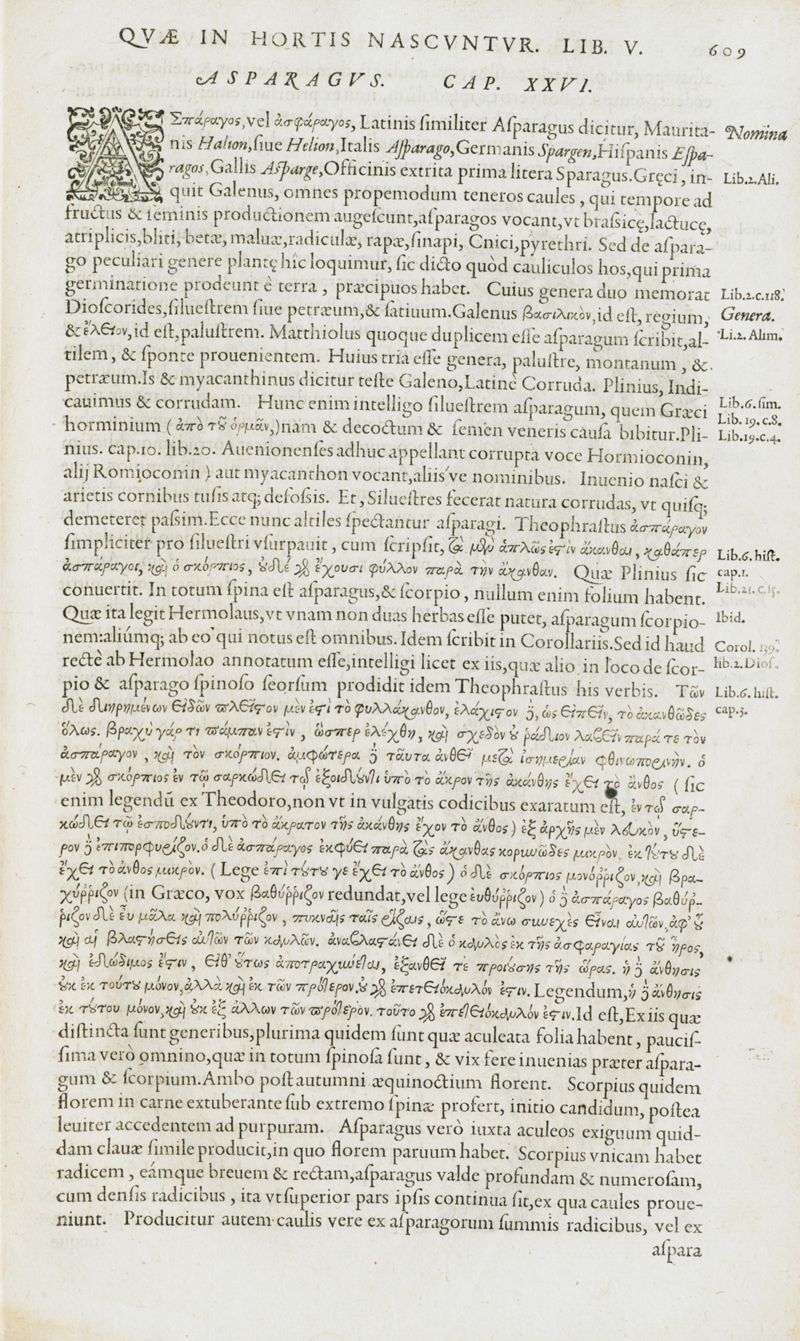 QVÆ IN HORTIS NASCVNTVR. LIB. V. 609
ASPARAGVS. CAP. XXVI.
AΣπάραγος, vel ἀσφάραγος, Latinis ſimiliter Aſparagus dicitur, Maurita-
nis Halion, ſiue Helion, Italis Aſparago, Germanis Spargen, Hiſpanis Eſpa-
ragos, Gallis Aſparge, Officinis extrita prima litera Sparagus. Gręci, in-
quit Galenus, omnes propemodum teneros caules, qui tempore ad
fructus & ſeminis productionem augeſcunt, aſparagos vocant, vt braſsicę, lactucę,
atriplicis, bliti, betæ, maluæ, radiculæ, rapæ, ſinapi, Cnici, pyrethri. Sed de aſpara-
go peculiari genere plantę hic loquimur, ſic dicto quòd cauliculos hos, qui prima
germinatione prodeunt è terra, præcipuos habet. Cuius genera duo memorat
Dioſcorides, ſilueſtrem ſiue petræum, & ſatiuum. Galenus βασιλικὸν, id eſt, regium,
& ἕλειον, id eſt, paluſtrem. Matthiolus quoque duplicem eſſe aſparagum ſcribit, al-
tilem, & ſponte prouenientem. Huius tria eſſe genera, paluſtre, montanum, &
petræum. Is & myacanthinus dicitur teſte Galeno, Latinè Corruda. Plinius, Indi-
cauimus & corrudam. Hunc enim intelligo ſilueſtrem aſparagum, quem Græci
horminium (ἀπὸ τοῦ ὁρμᾶν,) nam & decoctum & ſemen veneris cauſa bibitur. Pli-
nius. cap. 10. lib. 20. Auenionenſes adhuc appellant corrupta voce Hormioconin,
alij Romioconin) aut myacanthon vocant, aliis've nominibus. Inuenio naſci &
arietis cornibus tuſis atq; defoſsis. Et, Silueſtres fecerat natura corrudas, vt quiſq;
demeteret paſsim. Ecce nunc altiles ſpectantur aſparagi. Theophraſtus ἀσπάραγον
ſimpliciter pro ſilueſtri vſurpauit, cum ſcripſit, τὰ μὲν ἁπλῶς ἐστὶν ἄκανθαι, καθάπερ
ἀσπάραγος, καὶ ὁ σκόρπιος, οὐδὲ γὰρ ἔχουσι φύλλον παρὰ τὴν ἄκανθαν. Quæ Plinius ſic
conuertit. In totum ſpina eſt aſparagus, & ſcorpio, nullum enim folium habent.
Quæ ita legit Hermolaus, vt vnam non duas herbas eſſe putet, aſparagum ſcorpio-
nem: aliúmq; ab eo qui notus eſt omnibus. Idem ſcribit in Corollariis. Sed id haud
rectè ab Hermolao annotatum eſſe, intelligi licet ex iis, quæ alio in loco de ſcor-
pio & aſparago ſpinoſo ſeorſum prodidit idem Theophraſtus his verbis. Τῶν
δὲ διῃρημένων εἰδῶν πλεῖστον μὲν ἐστὶ τὸ φυλλάκανθον, ἐλάχιστον δὲ, ὡς εἰπεῖν, τὸ ἀκανθῶδες
ὅλως. βραχὺ γάρ τι πάμπαν ἐστὶν, ὥσπερ ἐλέχθη, καὶ σχεδὸν οὐ ῥάδιον λαβεῖν παρά τε τὸν
ἀσπάραγον, καὶ τὸν σκόρπιον. ἀμφότερα δὲ ταῦτα ἀνθεῖ μετὰ ἰσημερίαν φθινοπωρινήν. ὁ
μὲν γὰρ σκόρπιος ἐν τῷ σαρκώδει τῷ ἐξοιδοῦντι ὑπὸ τὸ ἄκρον τῆς ἀκάνθης ἔχει τὸ ἄνθος (ſic
enim legendū ex Theodoro, non vt in vulgatis codicibus exaratum eſt, ἐν τῷ σαρ-
κώδει τῷ ἐσποδοῦντι, ὑπὸ τὸ ἄκρατον τῆς ἀκάνθης ἔχον τὸ ἄνθος) ἐξ ἀρχῆς μὲν λευκὸν, ὕστε-
ρον δὲ ἐπιπορφυρίζον. ὁ δὲ ἀσπάραγος ἐκφύει παρὰ τὰς ἄκανθας κορυνῶδες μικρὸν, ἐκ τούτου δὲ
ἔχει τὸ ἄνθος μικρὸν. (Lege ἐπὶ τούτου γε ἔχει τὸ ἄνθος) ὁ δὲ σκόρπιος μονόῤῥιζον, καὶ βρα-
χύῤῥιζον (in Græco, vox βαθύῤῥιζον redundat, vel lege εὐθύῤῥιζον) ὁ δὲ ἀσπάραγος βαθύῤ-
ῥιζον δὲ εὖ μάλα καὶ πολύῤῥιζον, πυκναῖς ταῖς ῥίζαις, ὥστε τὸ ἄνω συνεχὲς εἶναι αὐτῶν, ἀφ' οὗ
καὶ αἱ βλαστήσεις αὐτῶν τῶν καυλῶν. ἀναβλαστάνει δὲ ὁ καυλὸς ἐκ τῆς ἀσφαραγίας τοῦ ἦρος,
καὶ ἐδώδιμος ἐστιν, εἶθ' οὕτως ἀποτραχύνεται, ἐξανθεῖ τε προϊούσης τῆς ὥρας. ἡ δὲ ἄνθησις
οὐκ ἐκ τούτου μόνον, ἀλλὰ καὶ ἐκ τῶν πρότερον. οὐ γὰρ ἐπετειόκαυλόν ἐστιν. Legendum, ἡ δὲ ἄνθησις
ἐκ τούτου μόνον, καὶ οὐκ ἐξ ἄλλων τῶν πρότερον. τοῦτο γὰρ ἐπετειόκαυλόν ἐστιν. Id eſt, Ex iis quæ
diſtincta ſunt generibus, plurima quidem ſunt quæ aculeata folia habent, pauciſ-
ſima verò omnino, quæ in totum ſpinoſa ſunt, & vix fere inuenias præter aſpara-
gum & ſcorpium. Ambo poſt autumni æquinoctium florent. Scorpius quidem
florem in carne extuberante ſub extremo ſpinæ profert, initio candidum, poſtea
leuiter accedentem ad purpuram. Aſparagus verò iuxta aculeos exiguum quid-
dam clauæ ſimile producit, in quo florem paruum habet. Scorpius vnicam habet
radicem, eámque breuem & rectam, aſparagus valde profundam & numeroſam,
cum denſis radicibus, ita vt ſuperior pars ipſis continua ſit, ex qua caules proue-
niunt. Producitur autem caulis vere ex aſparagorum ſummis radicibus, vel ex
aſpara
Nomina
Lib. 2. Ali.
Lib. 2. c. 118.
Genera.
Li. 2. Alim.
Lib. 6. ſim.
Lib. 19. c. 8.
Lib. 19. c. 4.
Lib. 6. hiſt.
cap. 1.
Lib. 21. c. 15.
Ibid.
Corol. 139.
lib. 2. Dioſ.
Lib. 6. hiſt.
cap. 3.